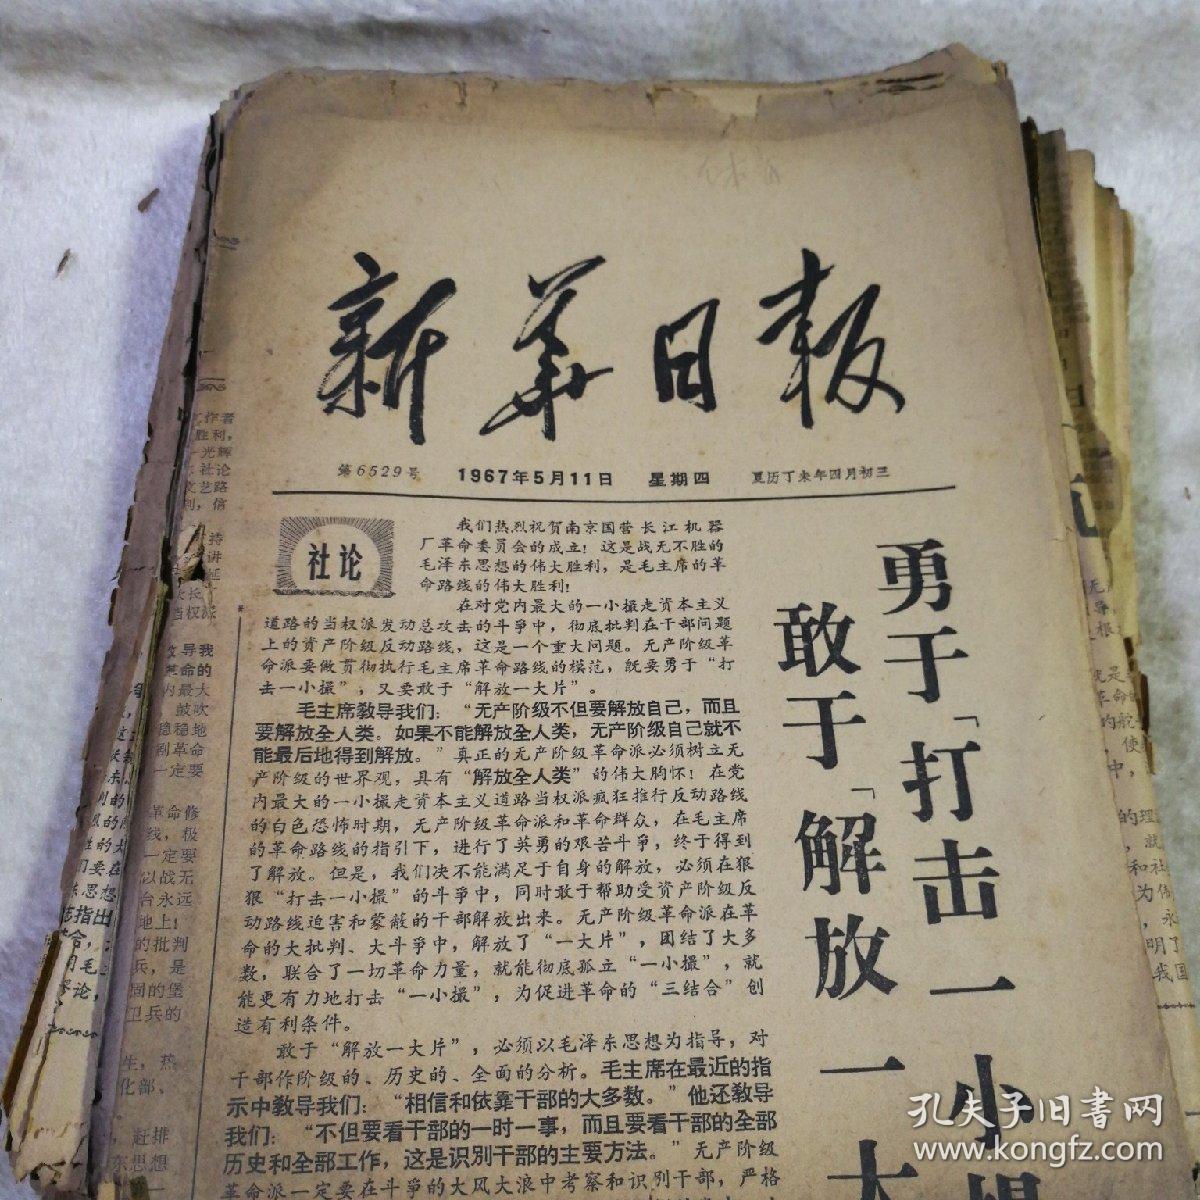 新华日报
第6529号 1967年5月11日 星期四 夏历丁未年四月初三
社论
勇于「打击一小撮
敢于「解放一大
我们热烈祝贺南京国营长江机器
厂革命委员会的成立！这是战无不胜的
毛泽东思想的伟大胜利，是毛主席的革
命路线的伟大胜利！
在对党内最大的一小撮走资本主义
道路的当权派发动总攻击的斗爭中，彻底批判在干部问题
上的資产阶级反动路线，这是一个重大问题。无产阶级革
命派要做贯彻执行毛主席革命路线的模范，旣要勇于“打
击一小撮”，又要敢于“解放一大片”。
毛主席敎导我们：“无产阶级不但要解放自己，而且
要解放全人类。如果不能解放全人类，无产阶级自己就不
能最后地得到解放。”真正的无产阶级革命派必须树立无
产阶级的世界观，具有“解放全人类”的伟大胸怀！在党
内最大的一小撮走资本主义道路当权派疯狂推行反动路线
的白色恐怖时期，无产阶级革命派和革命群众，在毛主席
的革命路线的指引下，进行了英勇的艰苦斗爭，终于得到
了解放。但是，我们决不能满足于自身的解放，必须在狠
狠“打击一小撮”的斗爭中，同时敢于帮助受資产阶级反
动路线迫害和蒙蔽的干部解放出来。无产阶级革命派在革
命的大批判、大斗爭中，解放了“一大片”，团结了大多
数，联合了一切革命力量，就能彻底孤立“一小撮”，就
能更有力地打击“一小撮”，为促进革命的“三结合”创
造有利条件。
敢于“解放一大片”，必须以毛泽东思想为指导，对
干部作阶级的、历史的、全面的分析。毛主席在最近的指
示中敎导我们：“相信和依靠干部的大多数。”他还敎导
我们：“不但要看干部的一时一事，而且要看干部的全部
历史和全部工作，这是识別干部的主要方法。”无产阶级
革命派一定要在斗爭的大风大浪中考察和识別干部，严格
孔夫子旧書网
www.kongfz.com